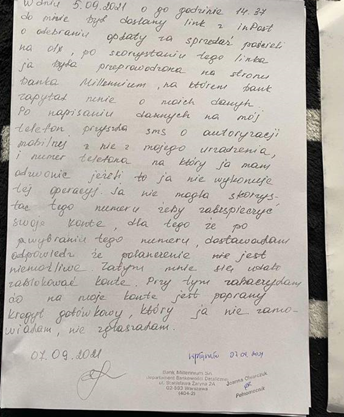 W dniu 5.09.2021 o go godzinie 14.37
do mnie był dostany link z inPost
o odebraniu opłaty za sprzedaż pościeli
na olx, po skorystaniu tego linka
ja była przeprowadzona na stronu
banka Millennium, na którem bank
zapytał mnie o moich danych.
Po napisaniu dannych na mój
telefon przyszła sms o autoryzacji
mobilnej z nie z mojego urządzenia,
i numer telefona na który ja mam
zdzwonić jeżeli to ja nie wykonuję
tej operacyj. Ja nie mogła skorys-
tać tego numeru żeby zabezpieczyć
swoje konte, dla tego że po
wybraniu tego numeru, dostawałam
odpowiedź że połączenie nie jest
niemożliwe. Zatym mnie się udało
zablokować konte. Przy tym zobaczyłam
co na moje konte jest poprany
kredyt gotówkowy, który ja nie zamo-
wiałam, nie zgłaszałam.
07.09.2021
07.09.2021
Bank Millennium SA
ul. Stanisława Żaryna 2A
02-593 Warszawa
Joanna